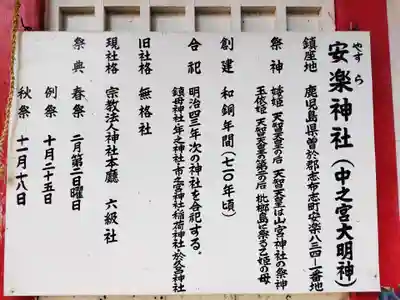 やすら
安楽神社（中之宮大明神）
鎮座地　鹿児島県曽於郡志布志町安楽八三四－一番地
祭神　姈姫　天智天皇の后　天智天皇は山宮神社の祭神
玉依姫　天智天皇の第二の后　枇榔島に奉る乙姫の母
創建　和銅年間（七一〇年頃）
合祀　明治四三年次の神社を合祀する。
鎮母神社・年之神社・市之宮神社・稲荷神社・於久呂神社
旧社格　無格社
現社格　宗教法人神社本廳　六級社
祭典　春祭　二月第二日曜日
例祭　十月二十五日
秋祭　十一月十八日